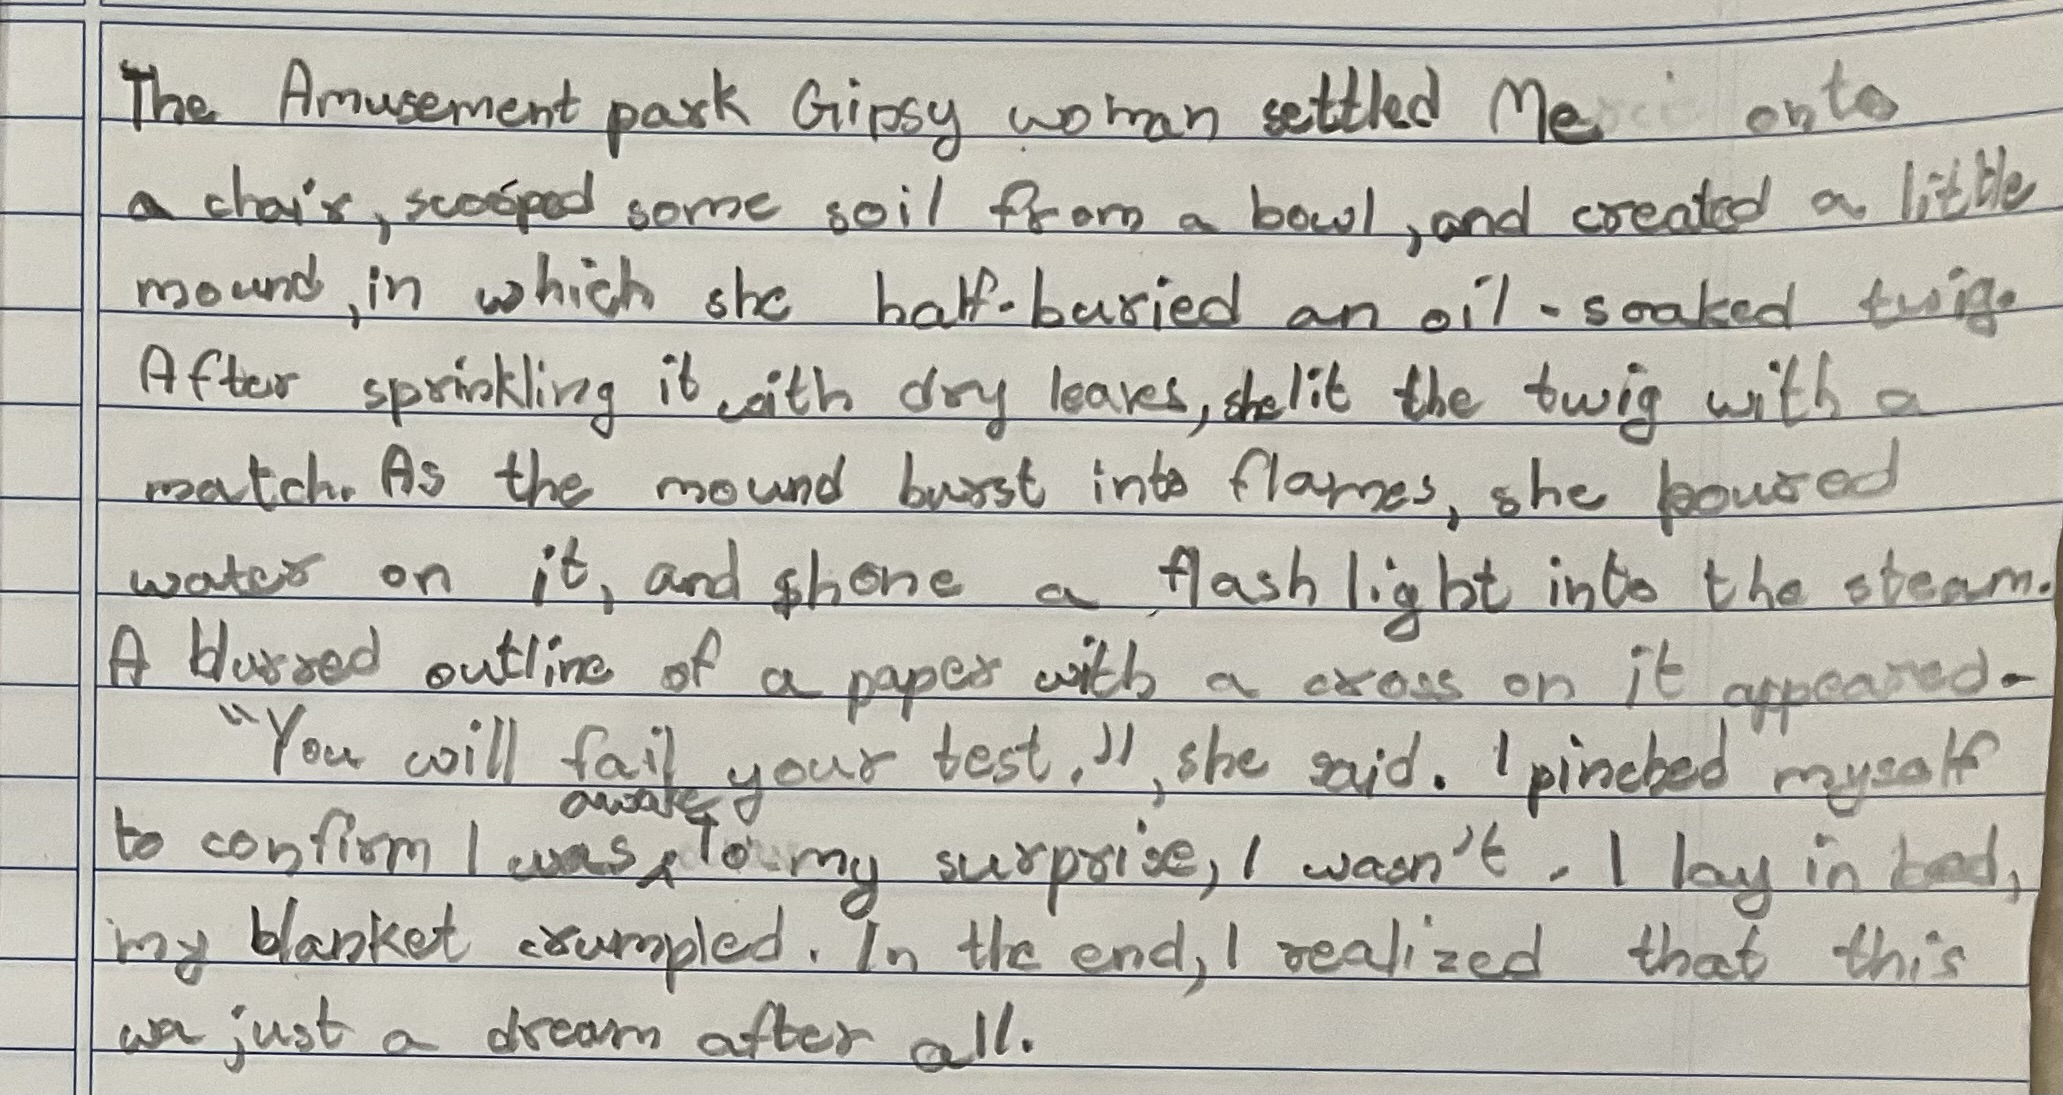 The Amusement park Gipsy woman settled Me onto
a chair, scooped some soil from a bowl, and created a little
mound, in which she half-buried an oil-soaked twig.
After sprinkling it with dry leaves, she lit the twig with a
match. As the mound burst into flames, she poured
water on it, and shone a flash light into the steam.
A blurred outline of a paper with a cross on it appeared.
"You will fail your test.", she said. I pinched myself
awake
to confirm I was, To my surprise, I wasn't. I lay in bed,
my blanket crumpled. In the end, I realized that this
wa just a dream after all.